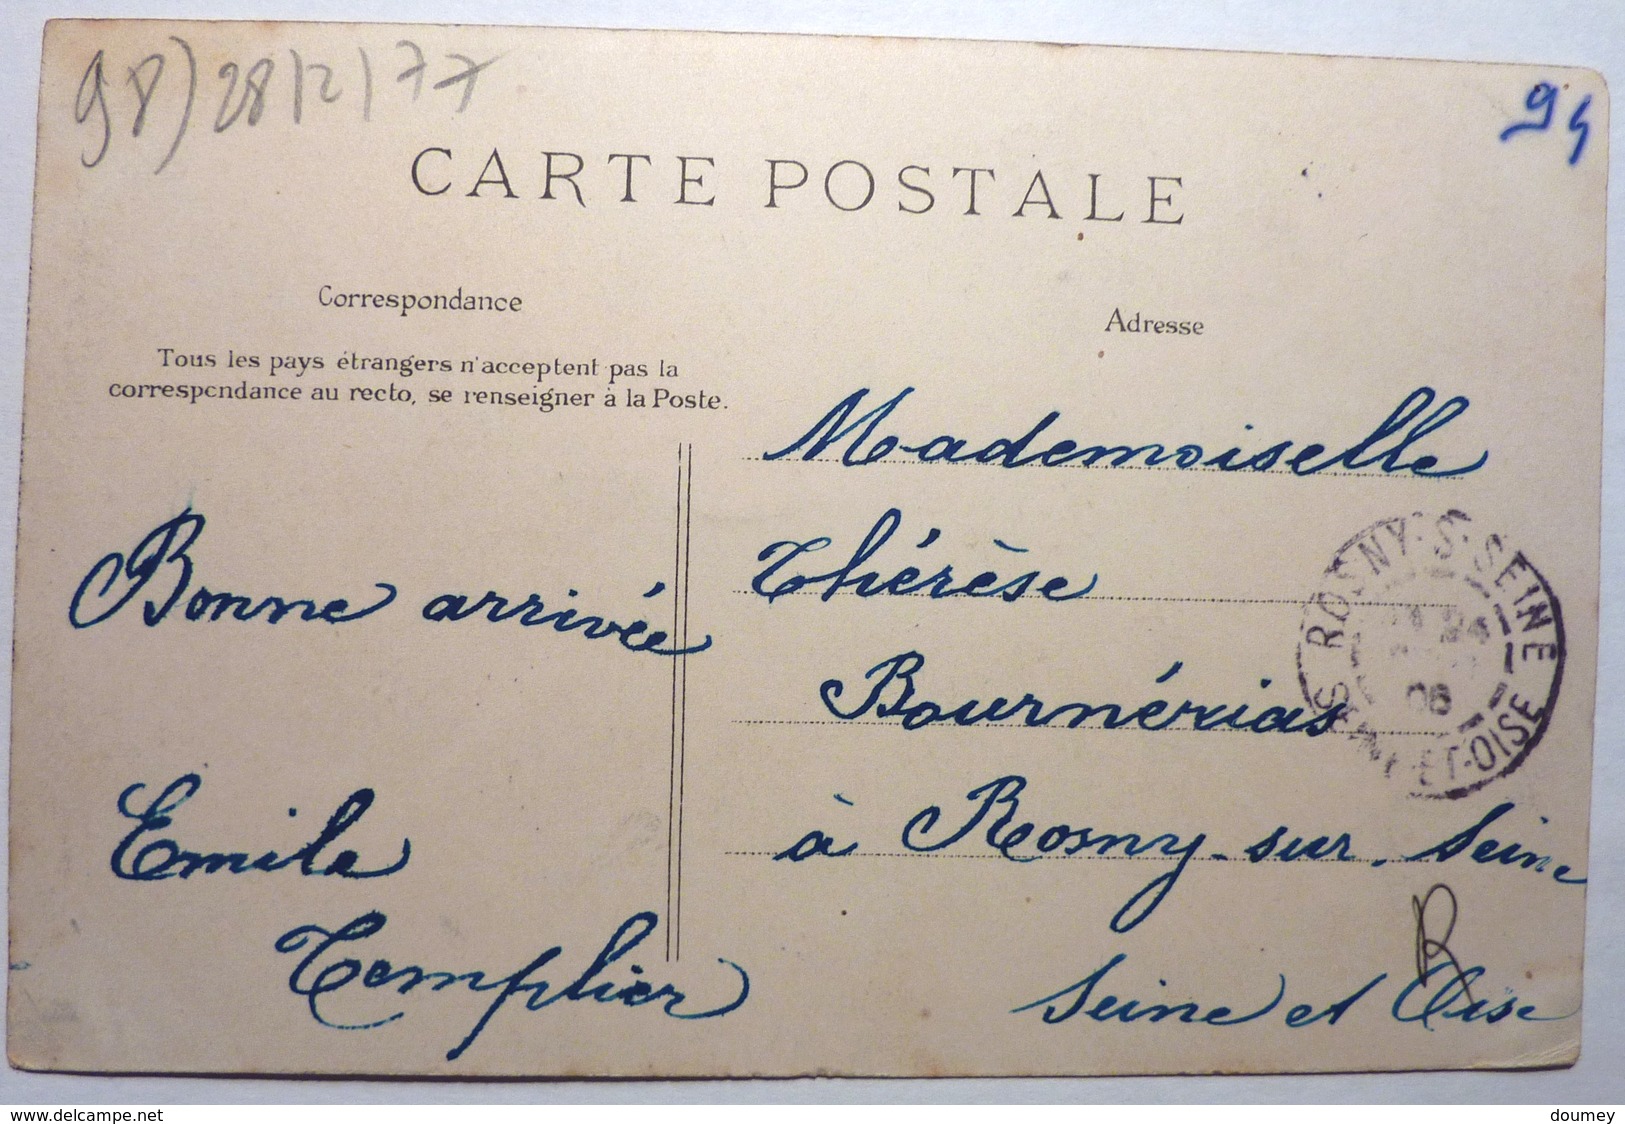 98) 28/2/77
94
CARTE POSTALE
Correspondance
Tous les pays étrangers n'acceptent pas la
correspondance au recto, se renseigner à la Poste.
Bonne arrivée
Emile
Templier
Adresse
Mademoiselle
Thérèse
Bournérias
à Rosny-sur-Seine
Seine et Oise
ROSNY-S-SEINE
06
SEINE-ET-OISE
www.delcampe.net
doumey